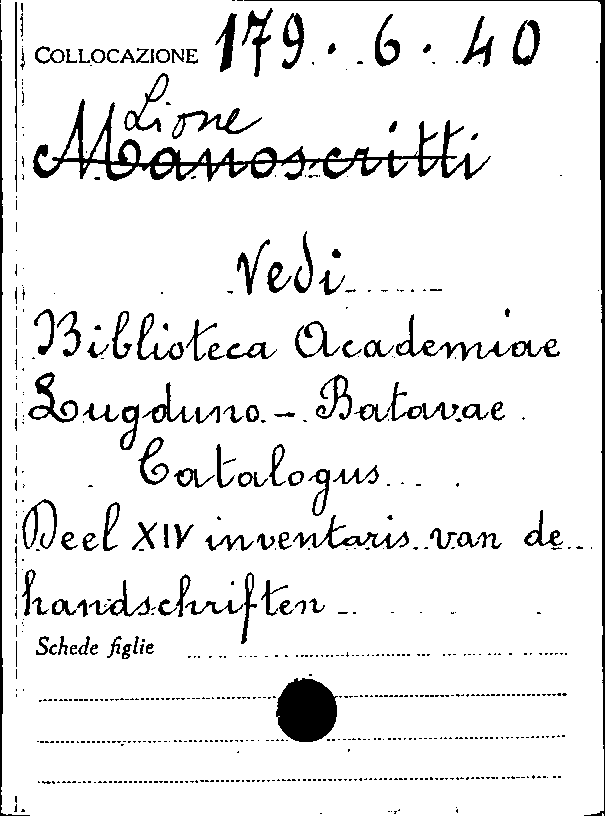 COLLOCAZIONE 179. 6. 40
Lione
Manoscritti
Vedi
Biblioteca Academiae
Lugduno - Batavae
Catalogus
Deel XIV inventaris van de
handschriften
Schede figlie